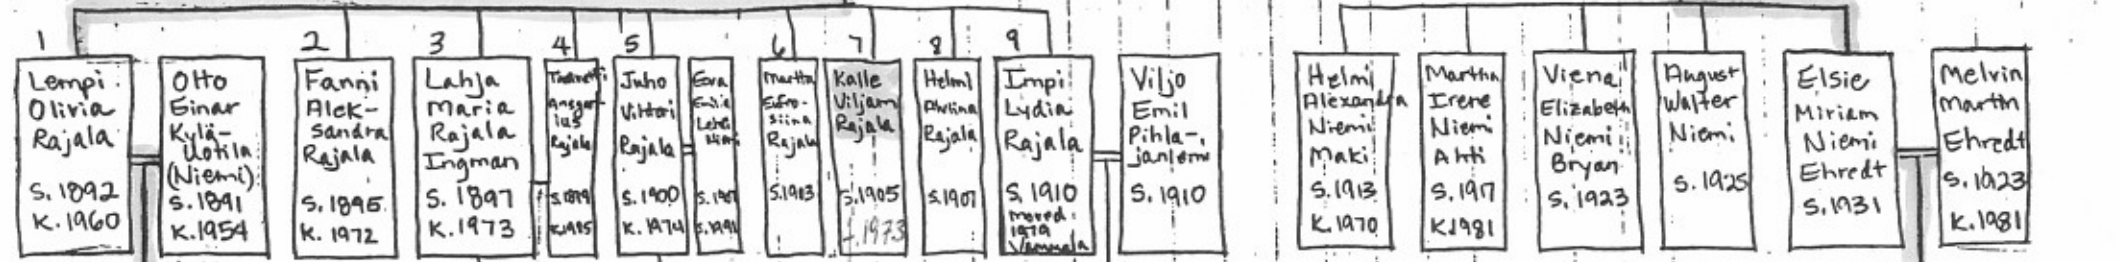 1
Lempi
Olivia
Rajala
S. 1892
K. 1960
Otto
Einar
Kylä-
Uotila
(Niemi)
S. 1891
K. 1954
2
Fanni
Alek-
sandra
Rajala
S. 1895
K. 1972
3
Lahja
Maria
Rajala
Ingman
S. 1897
K. 1973
4
Rajala
5
Juho
Vihtori
Rajala
S. 1900
K. 1974
6
Martta
Rajala
S. 1903
7
Kalle
Viljam
Rajala
S. 1905
1973
8
Helmi
Rajala
S. 1907
9
Impi
Lydia
Rajala
S. 1910
moved
1979
Vammala
Viljo
Emil
Pihla-
S. 1910
Helmi
Alexandra
Niemi
Maki
S. 1913
K. 1970
Martha
Irene
Niemi
Ahti
S. 1917
K 1981
Viena
Elizabeth
Niemi
Bryan
S. 1923
August
Walter
Niemi
S. 1925
Elsie
Miriam
Niemi
Ehredt
S. 1931
Melvin
Martin
Ehredt
S. 1923
K. 1981